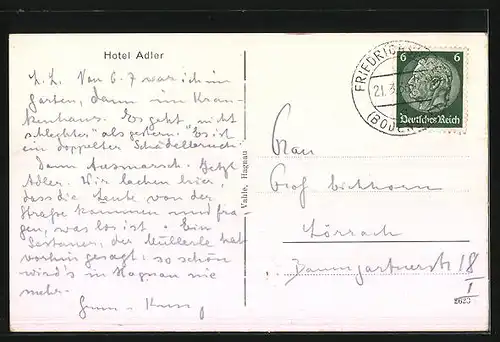 Hotel Adler
L. L. Von 6-7 war ich im
Garten, dann im Kran-
kenhaus. "Es geht nicht
schlechter" als gestern. "Es ist
ein doppelter Schädelbruch."
Dann Ausmarsch. Jetzt
Adler. Wir lachen hier,
dass die Leute von der
Straße kommen und fra-
gen, was los ist. Ein
Sextaner, der Müllerle hat
vorhin gesagt: so schön
wird's in Hagnau nie
mehr.
Vahle, Hagnau
FRIEDRICH
21.3.
(BODEN
6 6
Deutsches Reich
Frau
Prof Eichhorn
Lörrach
Baumgartnerstr 18
I
2623